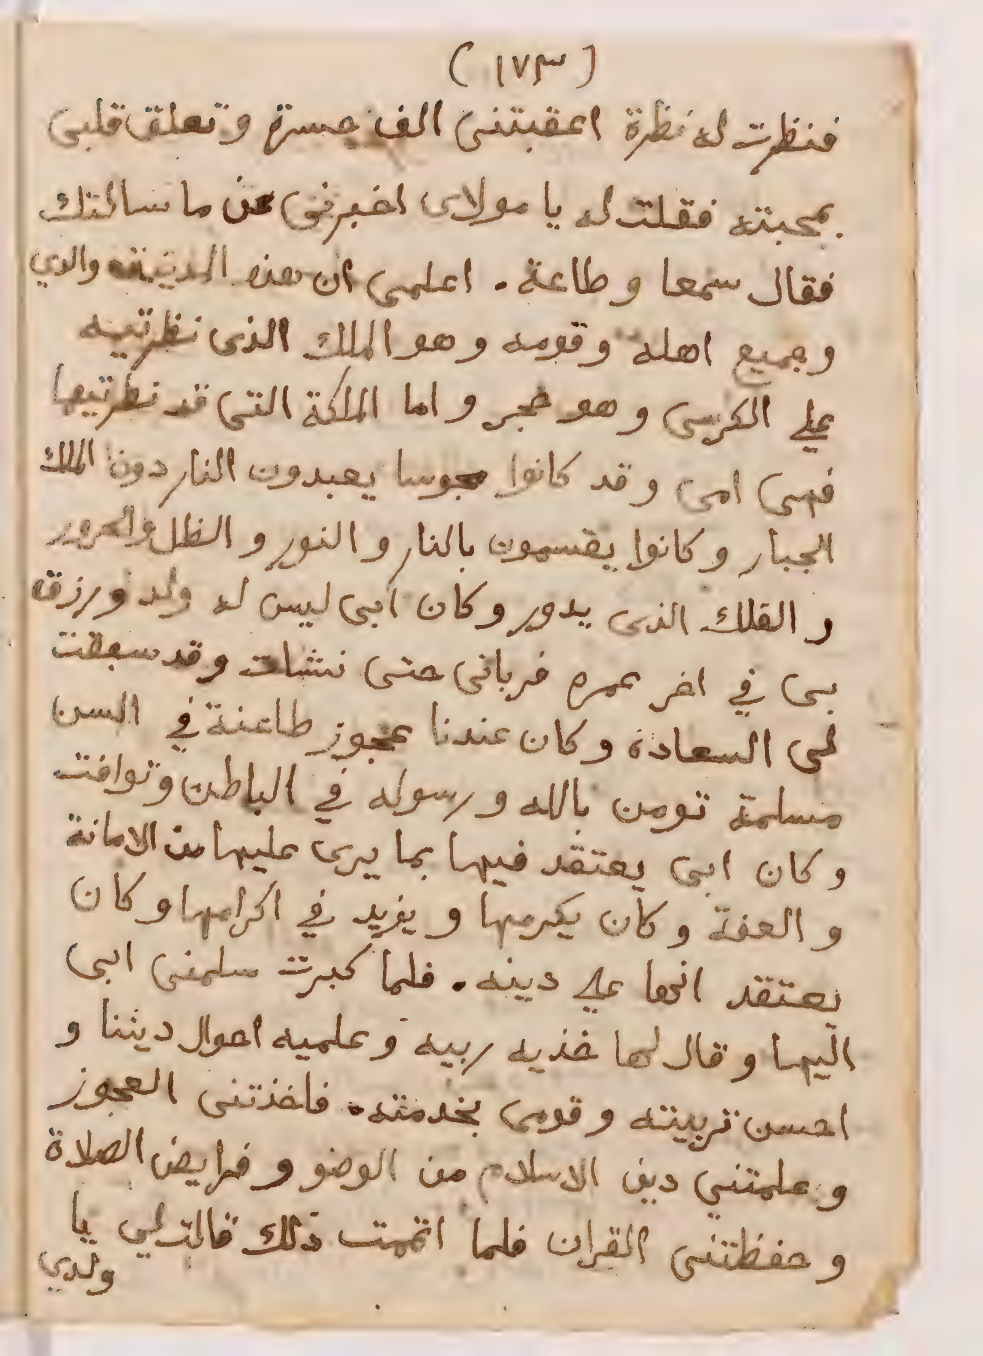 (١٧٣)
فنظرت له نظرة اعقبتنى الف حسرة و تعلق قلبى
بمحبته فقلت له يا مولاى اخبرنى عن ما سالتك
فقال سمعا و طاعة . اعلمى ان هذه المدينة والدي
و جميع اهله و قومه و هو الملك الذى نظرتيه
علي الكرسى و هو حجر و اما الملكة التى قد نظرتيها
فهى امى و قد كانوا مجوسا يعبدون النار دون الملك
الجبار و كانوا يقسمون بالنار و النور و الظل والحرور
و الفلك الذى يدور و كان ابى ليس له ولد ورزق
بى في اخر عمره فربانى حتى نشات وقد سبقت
لى السعادة و كان عندنا عجوز طاعنة في السن
مسلمة تومن بالله و رسوله في الباطن وتوافق
و كان ابى يعتقد فيها بما يرى عليها من الامانة
و العفة و كان يكرمها و يزيد في اكرامها و كان
يعتقد انها علي دينه . فلما كبرت سلمنى ابى
اليها و قال لها خذيه ربيه و علميه احوال ديننا و
احسن تربيته و قومى بخدمته . فاخذتنى العجوز
و علمتني دين الاسلام من الوضو و فرايض الصلاة
و حفظتنى القران فلما اتممت ذلك قالت لي يا
ولدي